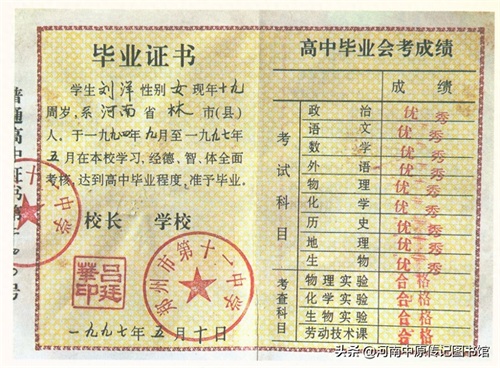 毕业证书
学生刘洋性别女现年十九
周岁,系河南省林市(县)
人。于一九九四年九月至一九九七年
五月在本校学习,经德、智、体全面
考核,达到高中毕业程度,准予毕业。
校长 学校
郑州市第十一中学
一九九七年五月十日
普通高中证书第
号
十一中学
高中毕业会考成绩
成绩
考试科目
政治 优秀
语文 优秀
数学 优秀
外语 优秀
物理 优秀
化学 优秀
历史 优秀
地理 优秀
生物 优秀
考查科目
物理实验 合格
化学实验 合格
生物实验 合格
劳动技术课 合格
头条 @河南中原传记图书馆